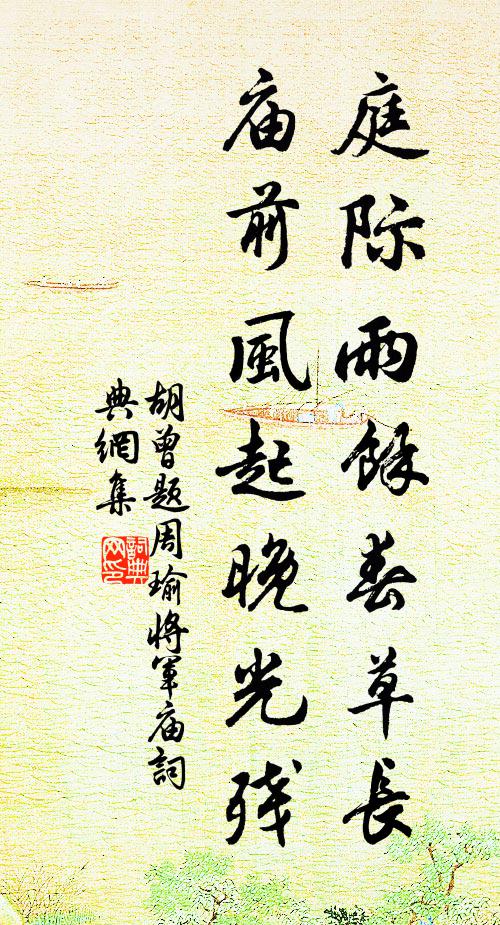 庭际雨餘春草長
庙前風起晚光残
胡曾题周瑜将軍庙詞
典網集
詞典
网印